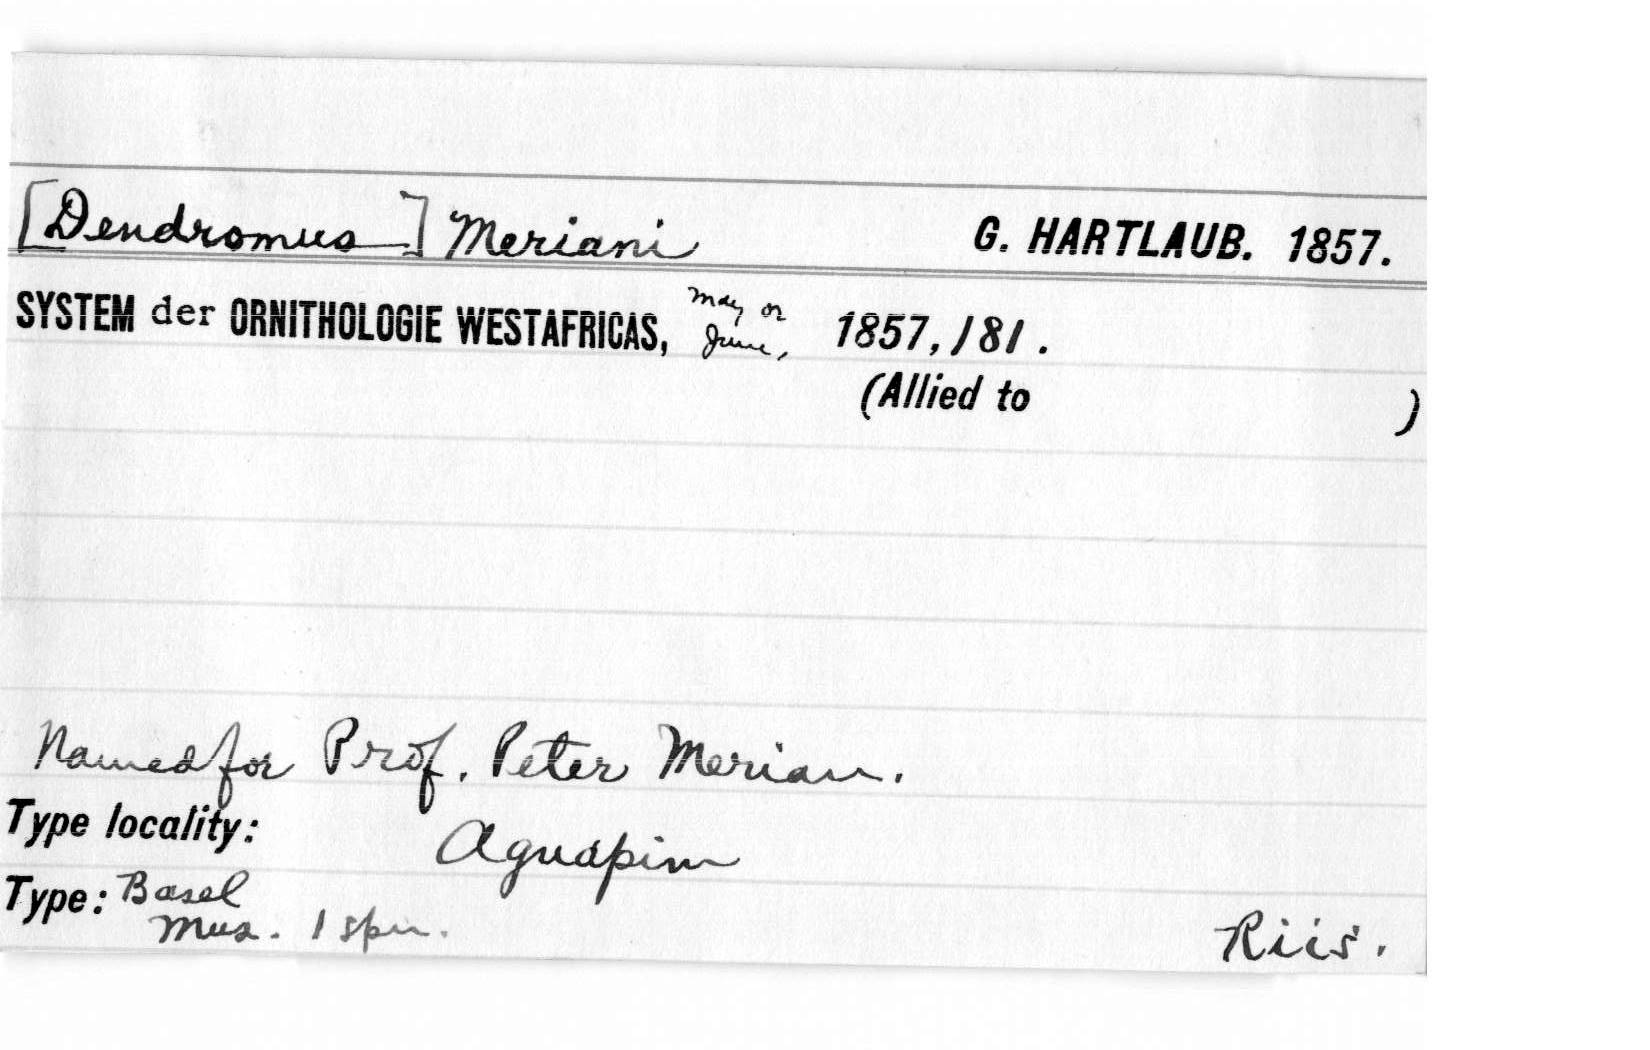 [Dendromus] Meriani G. HARTLAUB. 1857.
SYSTEM der ORNITHOLOGIE WESTAFRICAS, May or June, 1857, 181.
(Allied to )
Named for Prof. Peter Merian.
Type locality: Aguapim
Type: Basel
Mus. 1 spm. Riis.